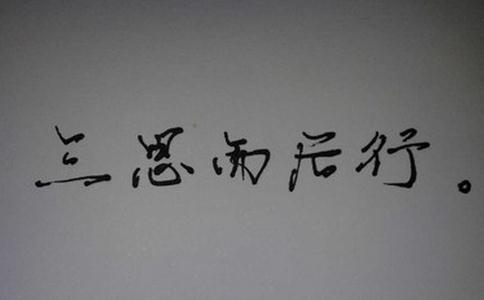 三思而后行。